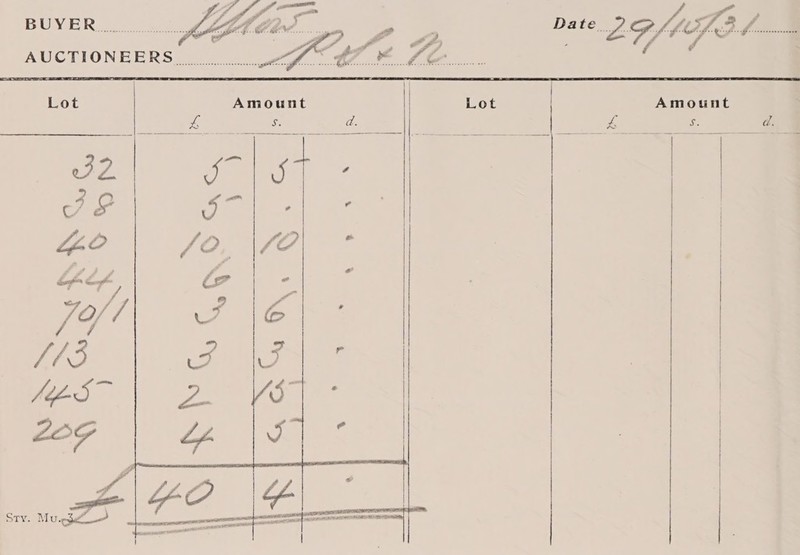 BUYER
Date 29/10/31
AUCTIONEERS P. S & N
Lot Amount Lot Amount
£ s. d. £ s. d.
32 5 5 "
38 5 " "
40 10 10 "
44 6 " "
70/1 3 6 "
113 3 3 "
145 2 15 "
209 4 5 "
£ 40 4 "
STY. MU. 3